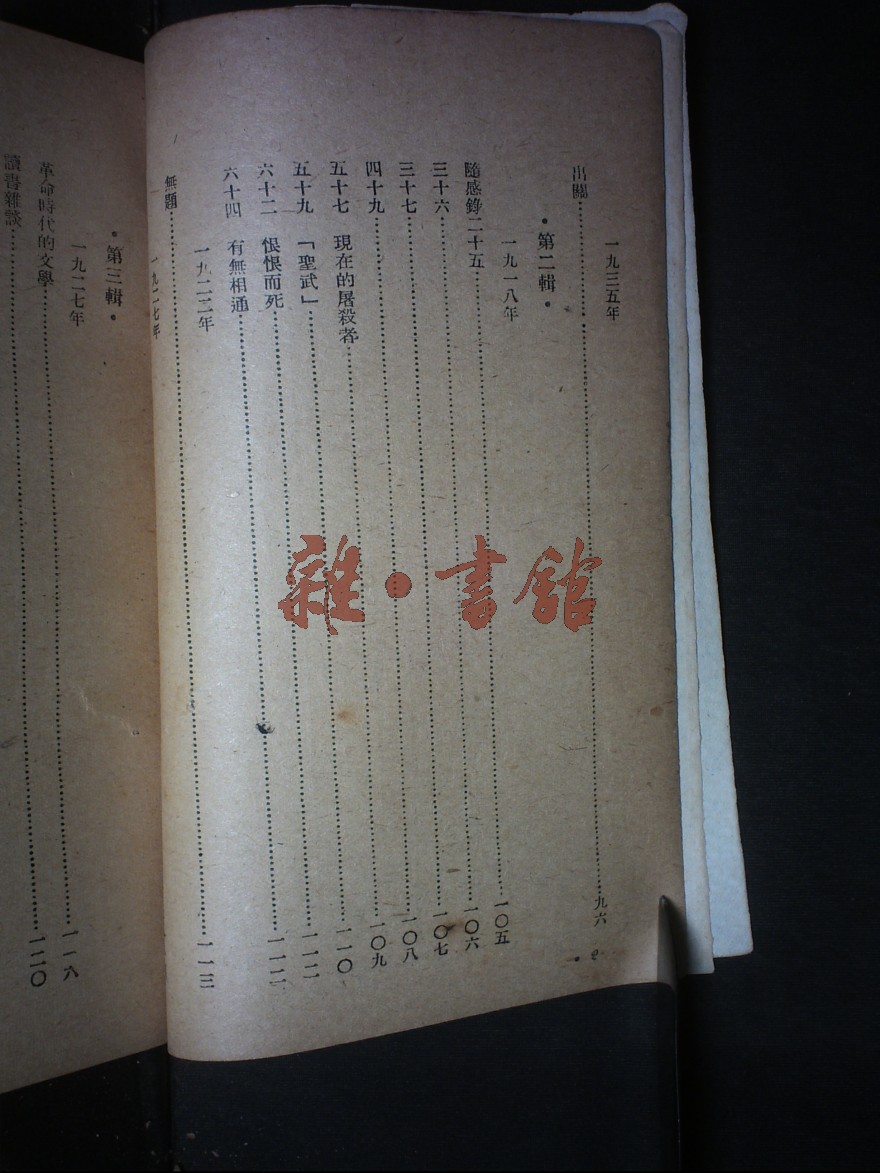 一九三五年
出關……九六
•第二輯•
一九一八年
隨感錄二十五……一〇五
三十六……一〇六
三十七……一〇七
四十九……一〇八
五十七 現在的屠殺者……一〇九
五十九 「聖武」……一一〇
六十二 恨恨而死……一一一
六十四 有無相通……一一二
一九二二年
無題……一一三
一九二七年
•第三輯•
一九二七年
革命時代的文學……一一八
讀書雜談……一二〇
• 2
雜•書館